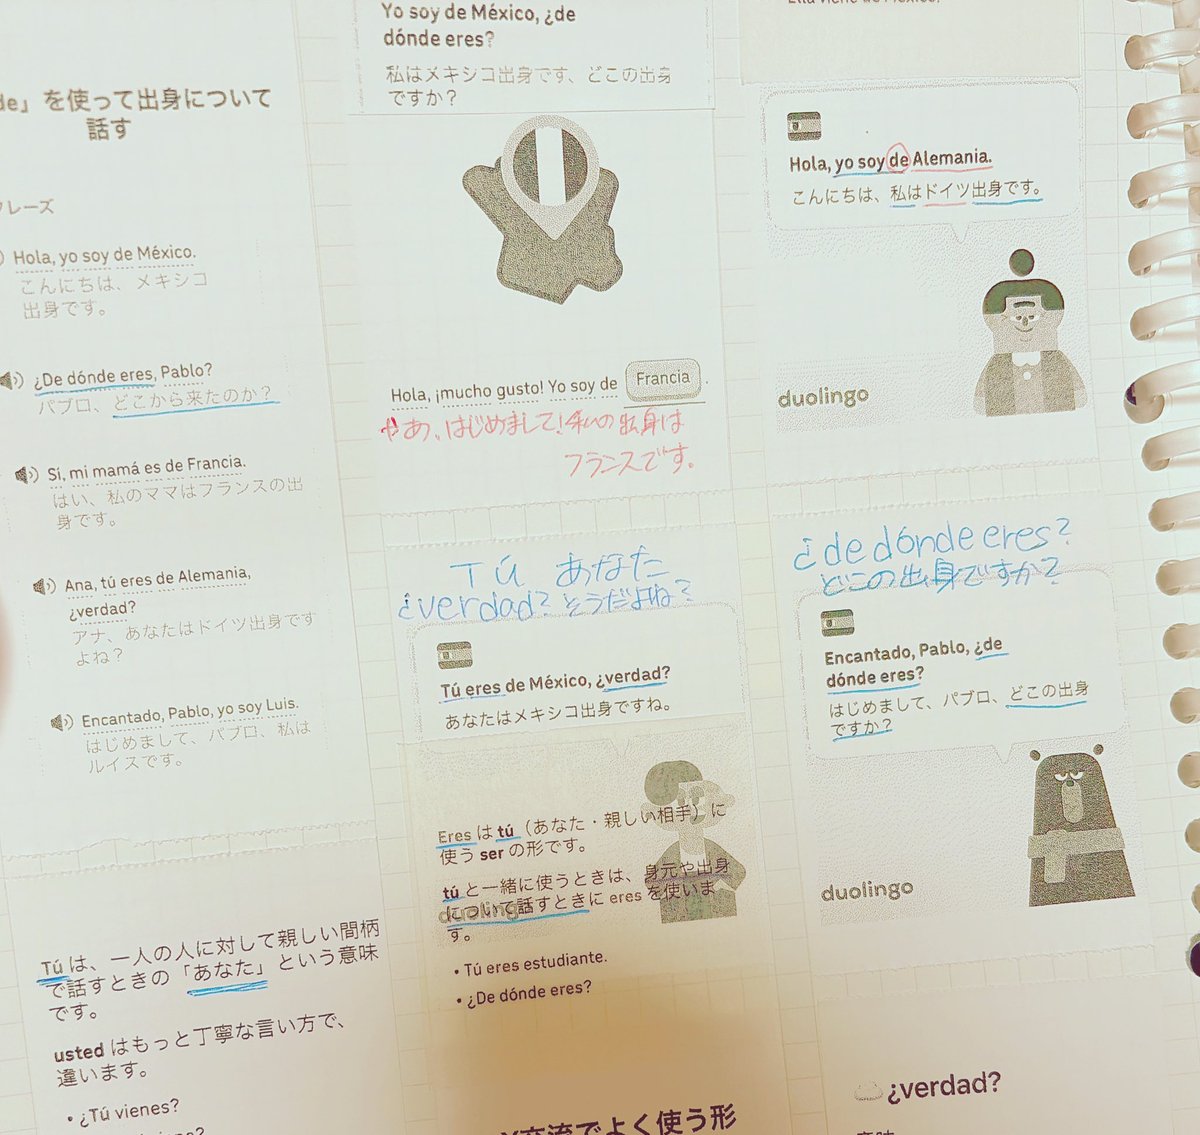 de」を使って出身について
話す
フレーズ
Hola, yo soy de México.
こんにちは、メキシコ
出身です。
¿De dónde eres, Pablo?
パブロ、どこから来たのか？
Sí, mi mamá es de Francia.
はい、私のママはフランスの出
身です。
Ana, tú eres de Alemania,
¿verdad?
アナ、あなたはドイツ出身です
よね？
Encantado, Pablo, yo soy Luis.
はじめまして、パブロ、私は
ルイスです。
Tú は、一人の人に対して親しい間柄
で話すときの「あなた」という意味
です。
usted はもっと丁寧な言い方で、
違います。
• ¿Tú vienes?
Yo soy de México, ¿de
dónde eres?
私はメキシコ出身です、どこの出身
ですか？
Hola, ¡mucho gusto! Yo soy de Francia.
やあ、はじめまして！私の出身は
フランスです。
Tú あなた
¿verdad? そうだよね？
Tú eres de México, ¿verdad?
あなたはメキシコ出身ですね。
Eres は tú（あなた・親しい相手）に
使う ser の形です。
tú と一緒に使うときは、身元や出身
について話すときに eres を使いま
す。
duolingo
• Tú eres estudiante.
• ¿De dónde eres?
交流でよく使う形
Ella viene de México.
Hola, yo soy de Alemania.
こんにちは、私はドイツ出身です。
duolingo
¿de dónde eres?
どこの出身ですか？
Encantado, Pablo, ¿de
dónde eres?
はじめまして、パブロ、どこの出身
ですか？
duolingo
¿verdad?